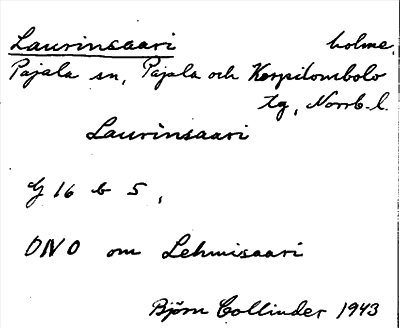 Laurinsaari holme,
Pajala sn, Pajala och Korpilombolo
tg, Norrb.l.
Laurinsaari
G 16 b 5,
ONO om Lehmisaari
Björn Collinder 1943